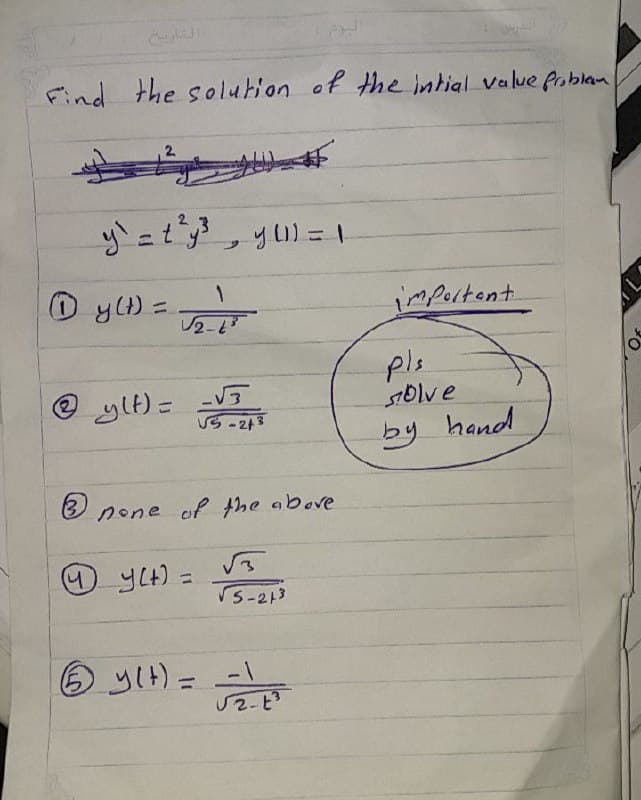 Find the solution of the intial value problem
y` = t²y³ , y(1) = 1
① y(t) = 1/√2-t³
important
② y(t) = -√3/√5-2t³
pls
solve
by hand
③ none of the above
④ y(t) = √3/√5-2t³
⑤ y(t) = -1/√2-t³